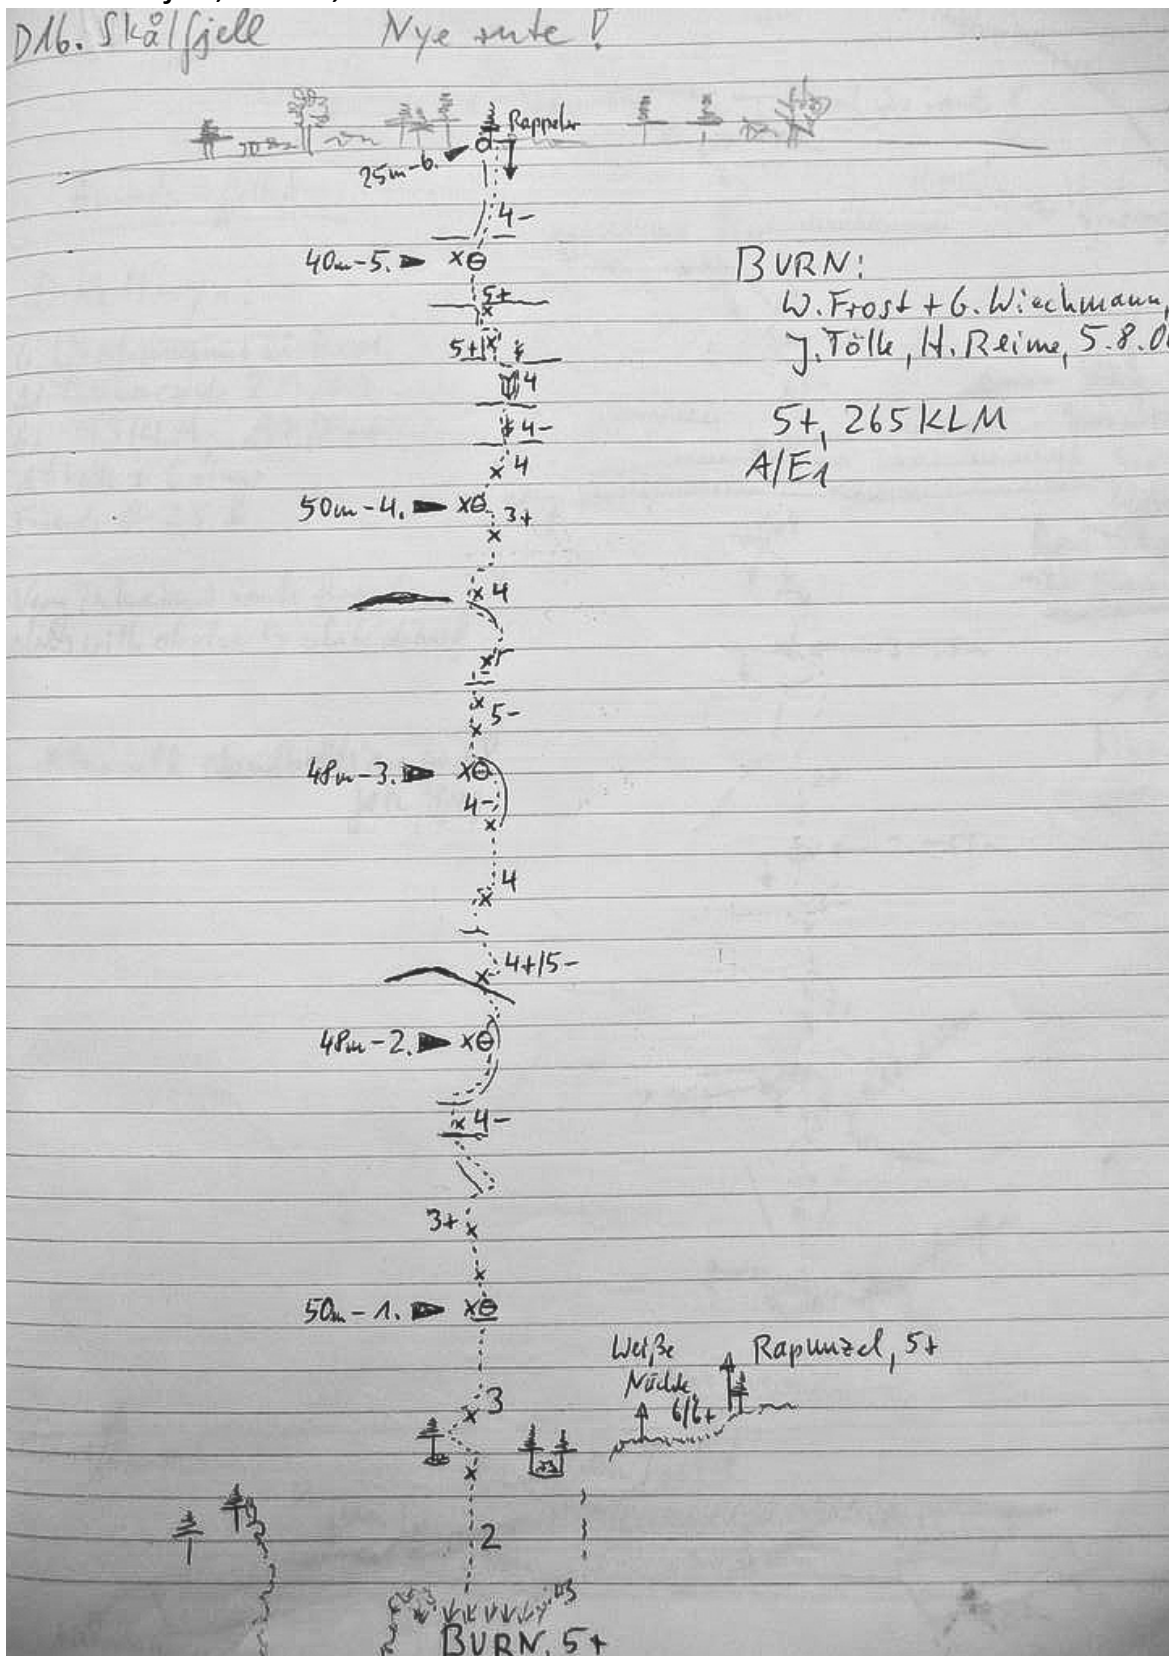 D16. Skålfjell Nye rute!
Rappeler
25m-6.
4-
40m-5.
5+
5+
4
4-
4
50m-4.
3+
4
5-
5-
48m-3.
4-
4
4+/5-
48m-2.
4-
3+
50m-1.
3
2
BURN:
W. Frost + G. Wiechmann,
J. Tölle, H. Reime, 5.8.0
5+, 265 KLM
A/E1
Weiße
Nächte,
6/6+
Rapunzel, 5+
BURN, 5+